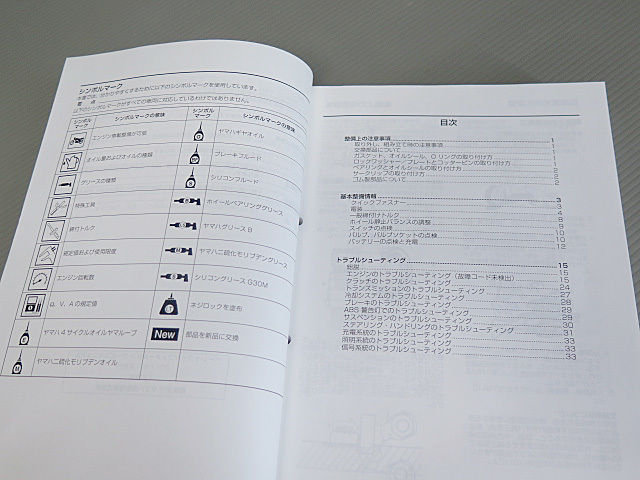 シンボルマーク
本書では、分かりやすくするために以下のシンボルマークを使用しています。
要 点
以下のシンボルマークがすべての車両に対応しているわけではありません。
シンボルマーク シンボルマークの意味 シンボルマーク シンボルマークの意味
エンジン搭載整備が可能 ヤマハギヤオイル
オイル量およびオイルの種類 ブレーキフルード
グリースの種類 シリコンフルード
特殊工具 ホイールベアリンググリース
締付トルク ヤマハグリース B
規定値および使用限度 ヤマハ二硫化モリブデングリース
エンジン回転数 シリコングリース G30M
Ω、V、A の規定値 ネジロックを塗布
ヤマハ 4 サイクルオイルヤマルーブ New 部品を新品に交換
ヤマハ二硫化モリブデンオイル
目次
整備上の注意事項 1
取り外し、組み立て時の注意事項 1
交換部品について 1
ガスケット、オイルシール、O リングの取り付け方 1
ロックワッシャー/プレートとコッターピンの取り付け方 1
ベアリングとオイルシールの取り付け方 2
サークリップの取り付け方 2
ゴム製部品について 2
基本整備情報 3
クイックファスナー 3
電装 4
一般締付けトルク 8
ホイール静止バランスの調整 9
スイッチの点検 9
バルブ、バルブソケットの点検 10
バッテリーの点検と充電 12
トラブルシューティング 15
総説 15
エンジンのトラブルシューティング（故障コード未検出） 15
クラッチのトラブルシューティング 15
トランスミッションのトラブルシューティング 24
冷却システムのトラブルシューティング 27
ブレーキのトラブルシューティング 28
ABS 警告灯でのトラブルシューティング 29
サスペンションのトラブルシューティング 29
ステアリング・ハンドリングのトラブルシューティング 30
充電系統のトラブルシューティング 31
照明系統のトラブルシューティング 33
信号系統のトラブルシューティング 33